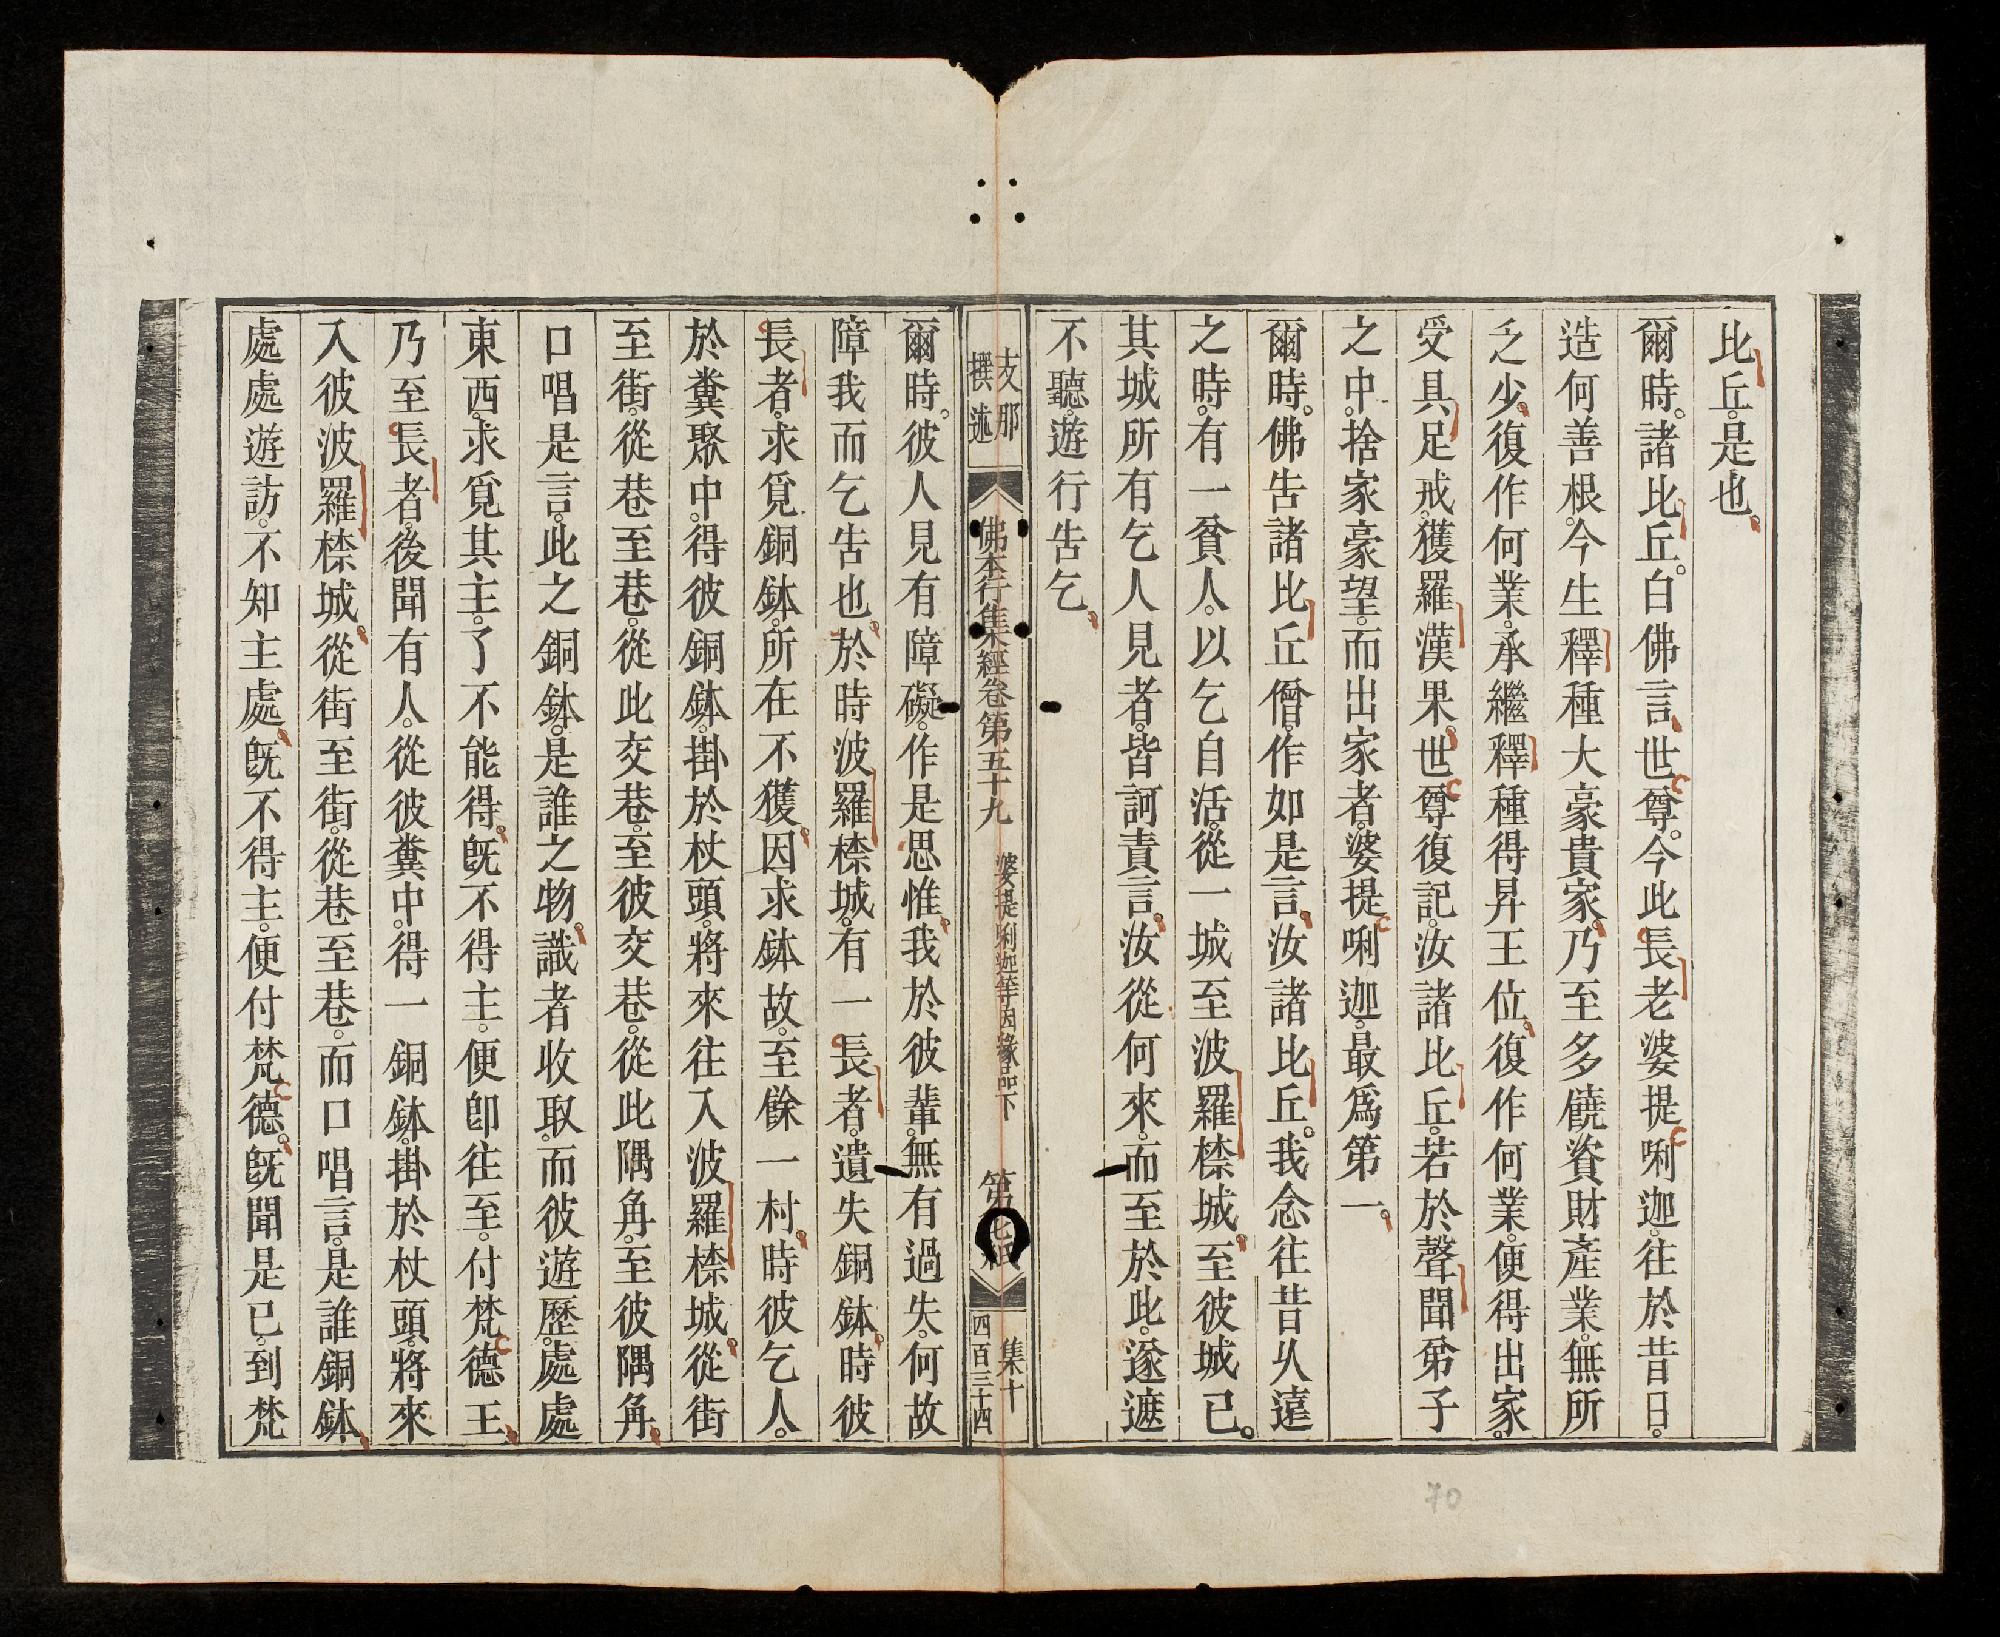 比丘。是也。
爾時。諸比丘。白佛言。世尊。今此長老婆提唎迦。往於昔日。
造何善根。今生釋種大豪貴家。乃至多饒資財產業。無所
乏少。復作何業。承繼釋種得昇王位。復作何業。便得出家。
受具足戒。獲羅漢果。世尊復記。汝諸比丘。若於聲聞弟子
之中。捨家豪望。而出家者。婆提唎迦。最爲第一。
爾時。佛告諸比丘僧。作如是言。汝諸比丘。我念往昔久遠
之時。有一貧人。以乞自活。從一城至波羅㮈城。至彼城已。
其城所有乞人見者。皆訶責言。汝從何來。而至於此。遂遮
不聽。遊行告乞。
支那
撰述
佛本行集經卷第五十九 婆提唎迦等因緣品下 第七紙
集十
四百三十四
爾時。彼人見有障礙。作是思惟。我於彼輩。無有過失。何故
障我而乞告也。於時波羅㮈城。有一長者。遺失銅鉢。時彼
長者。求覓銅鉢。所在不獲。因求鉢故。至餘一村。時彼乞人。
於糞聚中。得彼銅鉢。掛於杖頭。將來往入波羅㮈城。從街
至街。從巷至巷。從此交巷。至彼交巷。從此隅角。至彼隅角。
口唱是言。此之銅鉢。是誰之物。識者收取。而彼遊歷。處處
東西。求覓其主。了不能得。旣不得主。便卽往至。付梵德王。
乃至長者。後聞有人。從彼糞中。得一銅鉢。掛於杖頭。將來
入彼波羅㮈城。從街至街。從巷至巷。而口唱言。是誰銅鉢。
處處遊訪。不知主處。旣不得主。便付梵德。旣聞是已。到梵